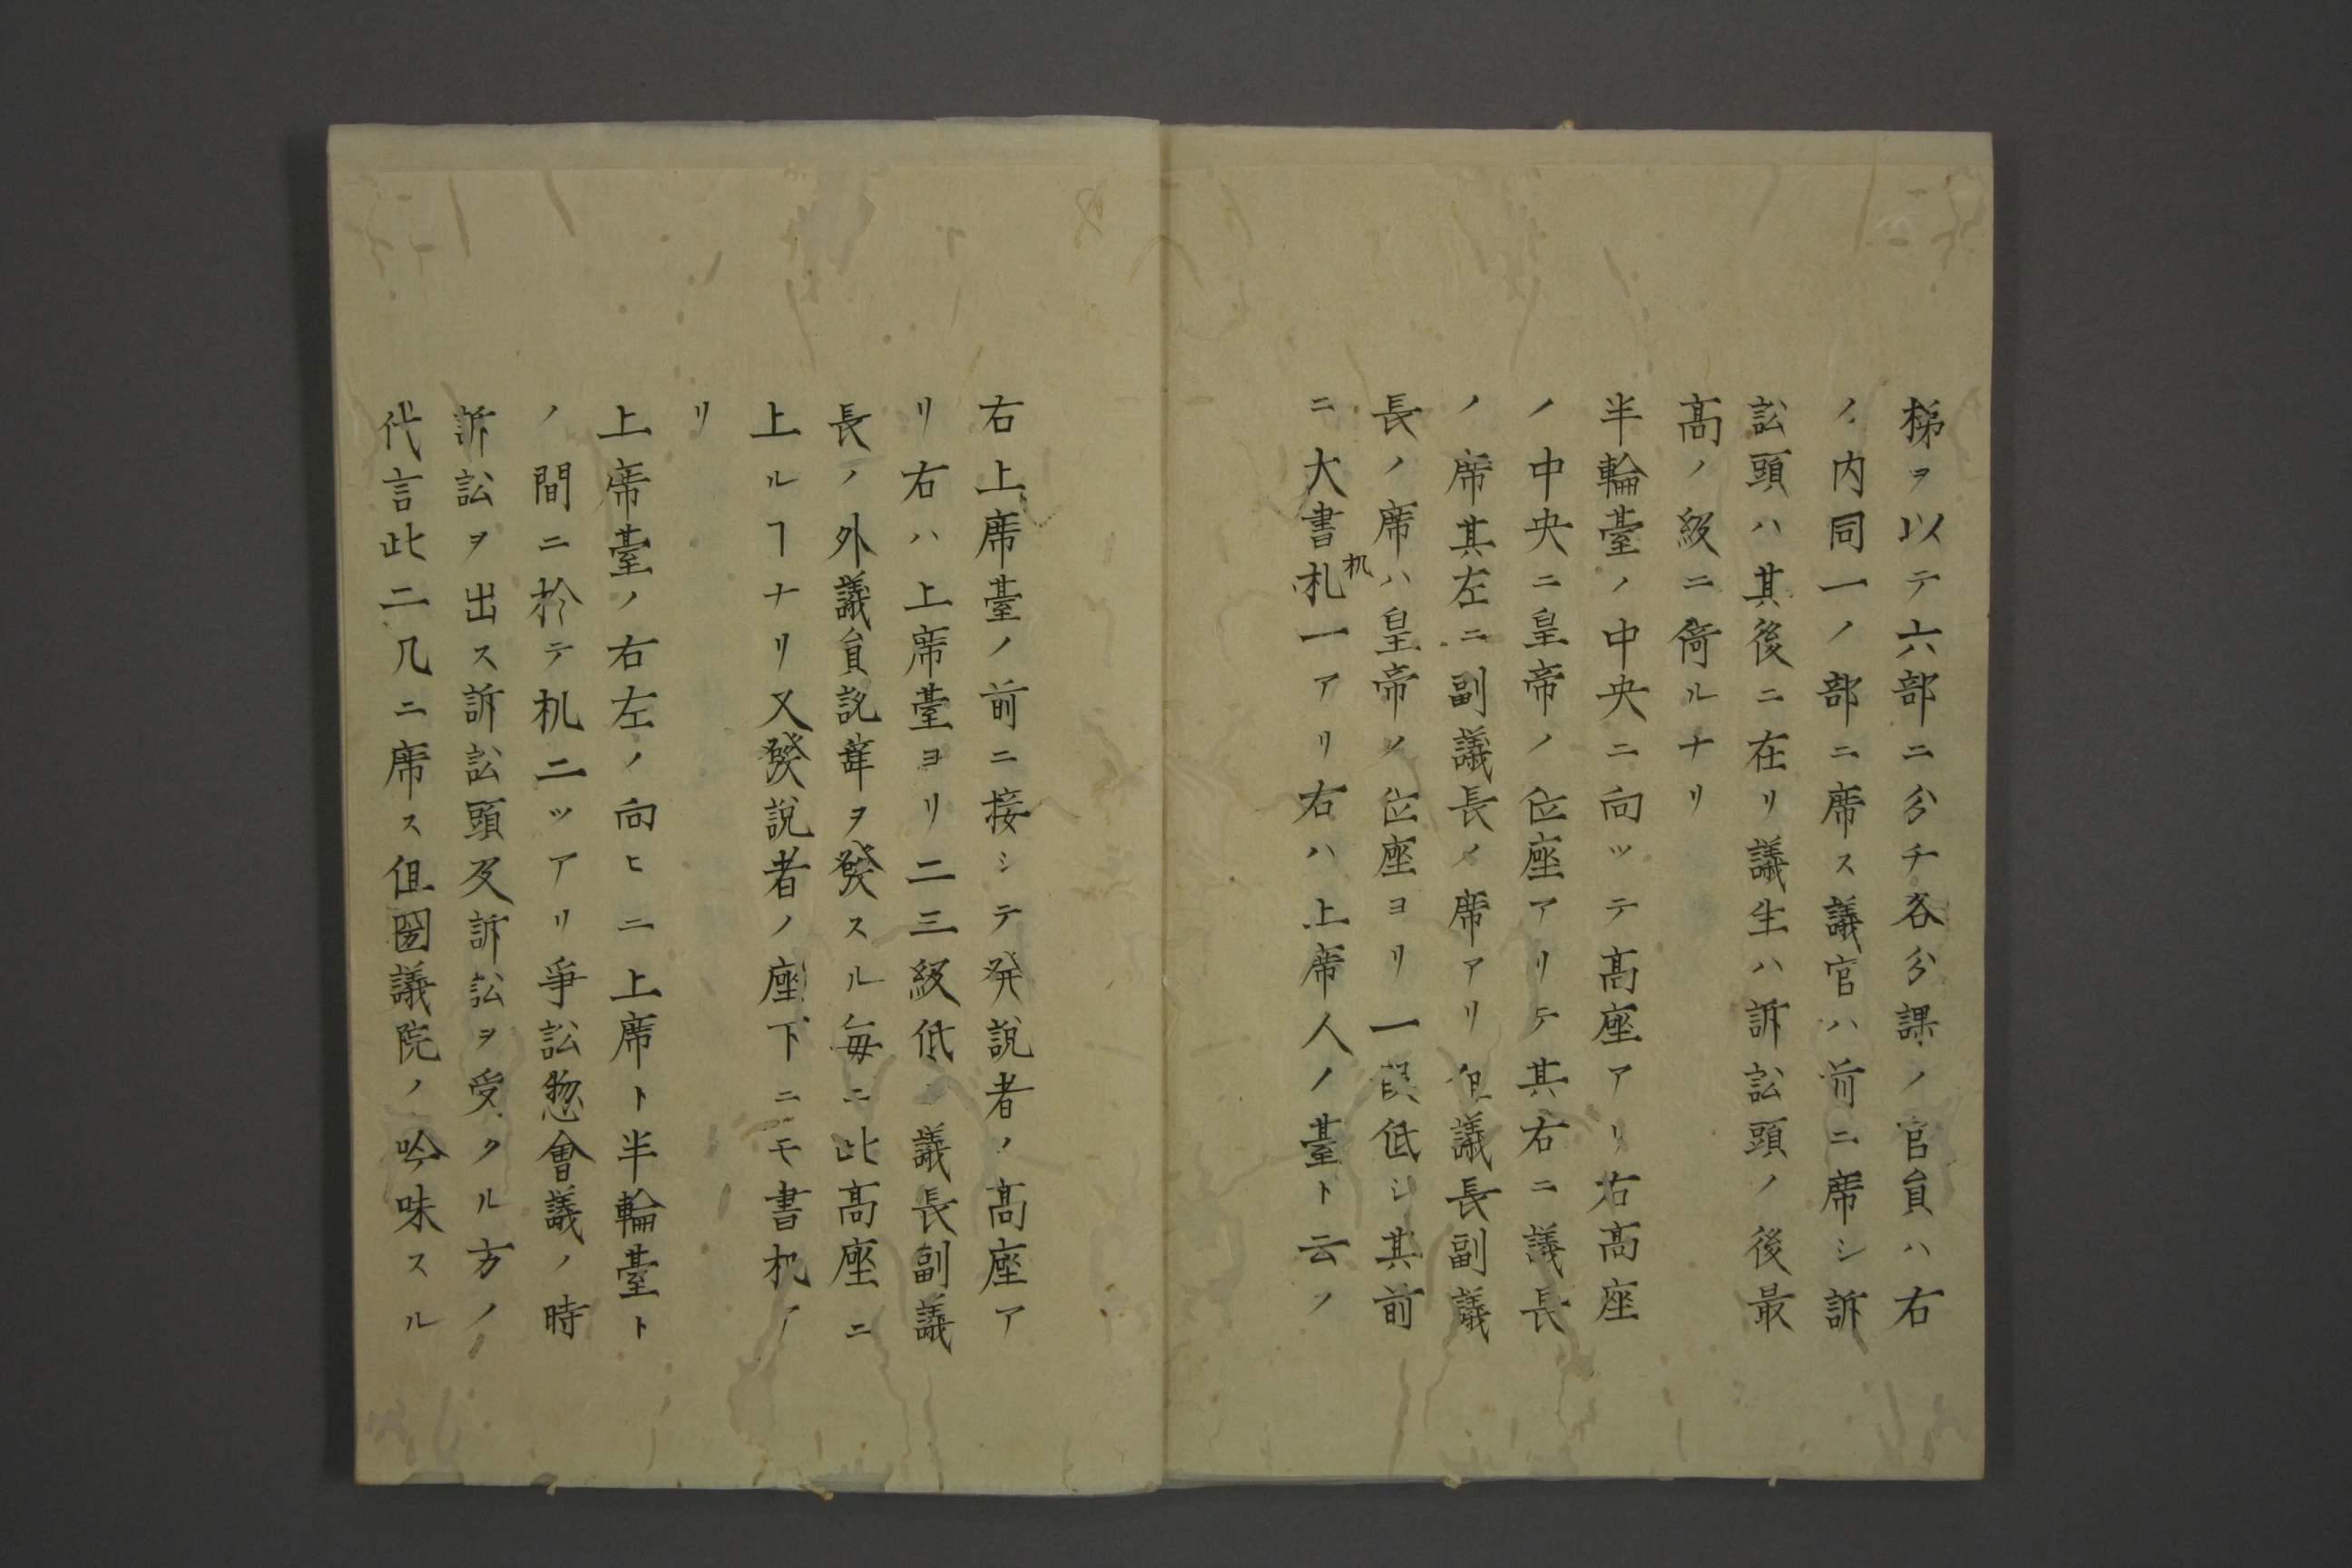 梯ヲ以テ六部ニ分チ各分課ノ官員ハ右
ノ内同一ノ部ニ席ス議官ハ前ニ席シ訴
訟頭ハ其後ニ在リ議生ハ訴訟頭ノ後最
髙ノ級ニ倚ルナリ
半輪臺ノ中央ニ向ッテ髙座アリ右髙座
ノ中央ニ皇帝ノ位座アリテ其右ニ議長
ノ席其左ニ副議長ノ席アリ但議長副議
長ノ席ハ皇帝ノ位座ヨリ一段低シ其前
ニ大書札一アリ右ハ上席人ノ臺ト云ノ
机
右上席臺ノ前ニ接シテ発説者ノ髙座ア
リ右ハ上席臺ヨリ二三級低ニ議長副議
長ノ外議員説辛ヲ發スル毎ニ此髙座ニ
上ルヿナリ又發説者ノ座下ニモ書机ア
リ
上席臺ノ右左ノ向ヒニ上席ト半輪臺ト
ノ間ニ於テ机二ッアリ爭訟惣會議ノ時
訴訟ヲ出ス訴訟頭及訴訟ヲ受クル方ノ
代言此二几ニ席ス但圀議院ノ吟味スル